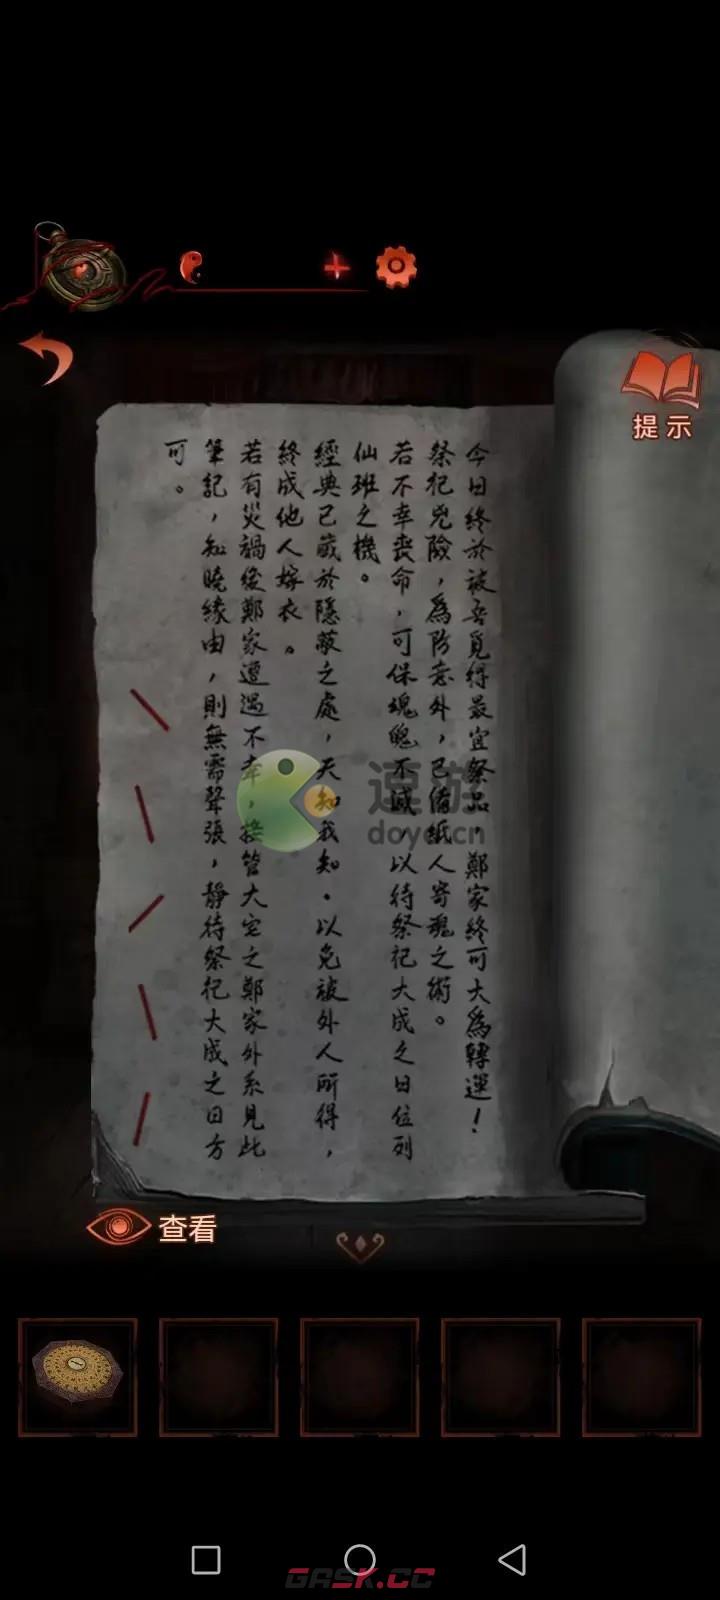 提示
今日終於被吾覓得最宜祭品，鄭家終可大爲轉運！
祭祀兇險，爲防意外，已備紙人寄魂之術。
若不幸喪命，可保魂魄不滅，以待祭祀大成之日位列
仙班之機。
經典已藏於隱蔽之處，天知我知。以免被外人所得，
終成他人嫁衣。
若有災禍後鄭家遭遇不幸，接管大宅之鄭家外系見此
筆記，知曉緣由，則無需聲張，靜待祭祀大成之日方
可。
逗游
doyo.cn
查看
GASK.CC